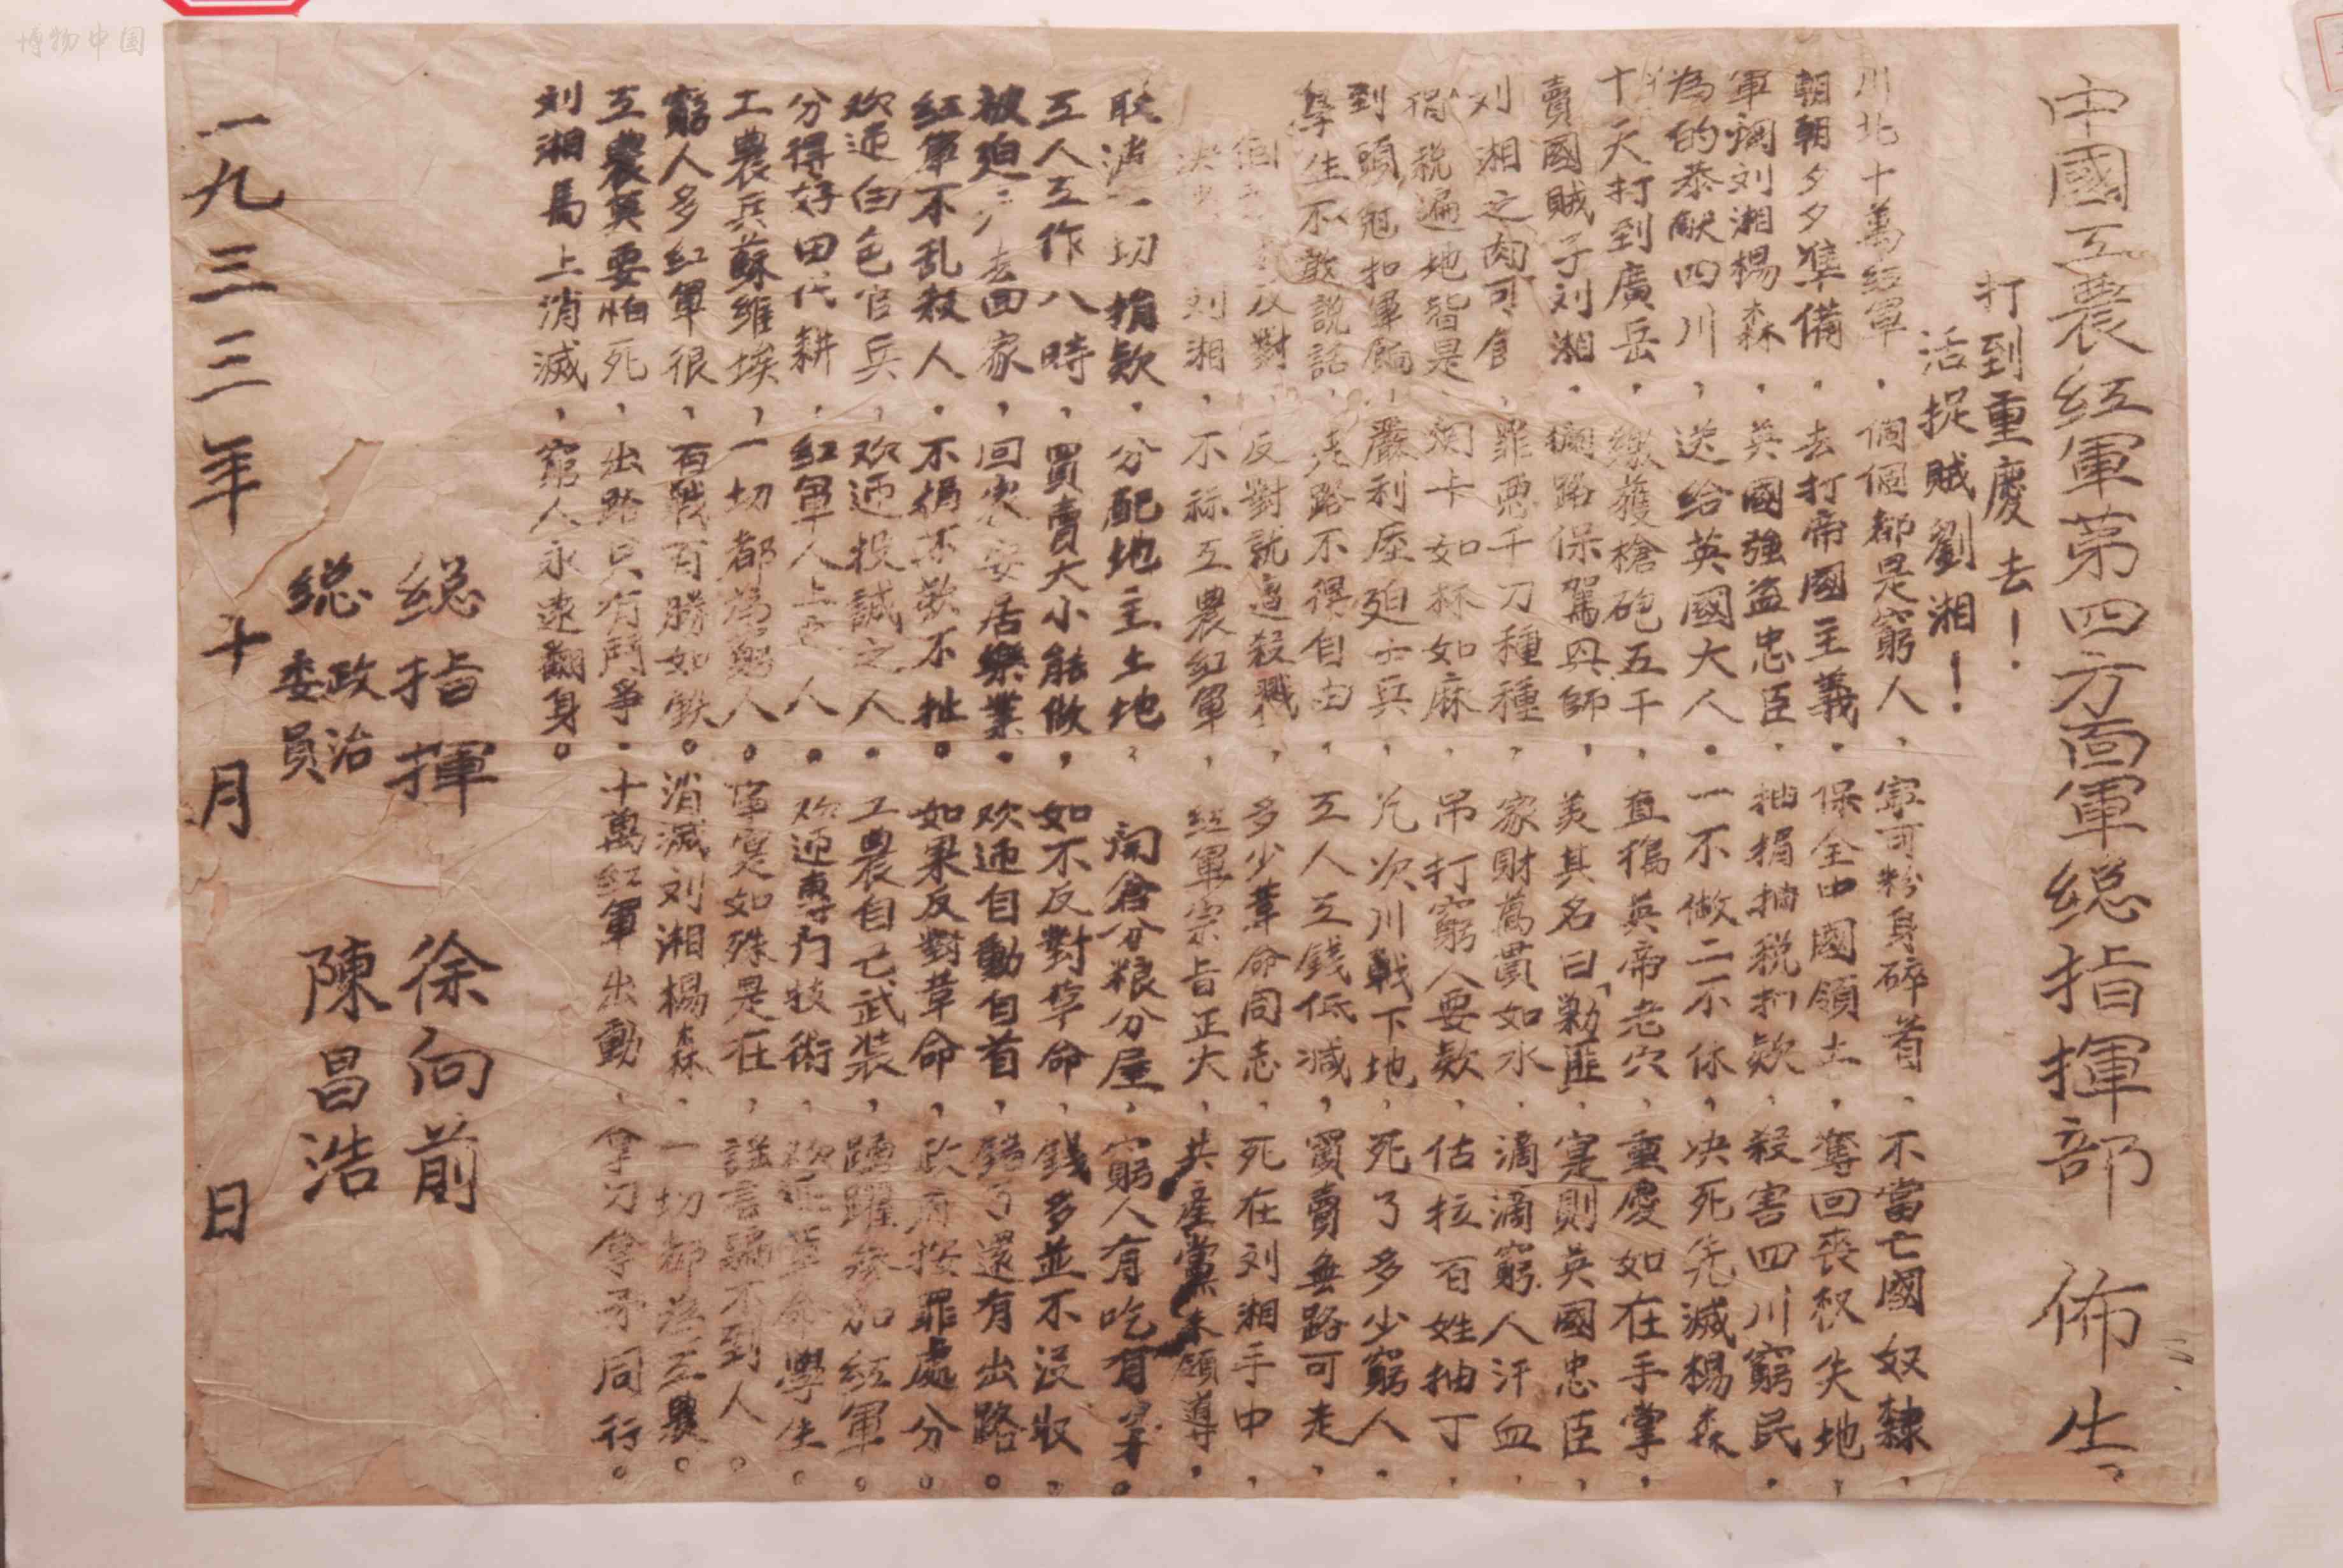 中國工農紅軍第四方面軍総指揮部 佈告
打到重慶去！
活捉賊劉湘！
川北十萬紅軍，個個都是窮人，寧可粉身碎首，不當亡國奴隸，
朝朝夕夕準備，去打帝國主義，保全中國領土，奪回喪权失地，
軍阀刘湘楊森，英國強盗忠臣，抽捐抽税扣欵，殺害四川窮民，
為的恭献四川，送给英國大人，一不做二不休，决死先滅楊森，
十天打到廣岳，缴獲槍砲五千，直搗英帝老穴，重慶如在手掌，
賣國賊子刘湘，擱路保駕興師，美其名曰「勦匪」，寔則英國忠臣，
刘湘之肉可食，罪悪千刀種種，家財萬貫如水，滴滴窮人汗血，
捐税遍地皆是，関卡如林如麻，吊打窮人要欵，估拉百姓抽丁，
到頭尅扣軍餉，嚴利壓廹士兵，凢次川戰下地，死了多少窮人，
學生不敢説話，走路不得自由，工人工錢低減，買賣無路可走，
個 反對，反對就遭殺戮，多少革命同志，死在刘湘手中，
决 刘湘，不称工農紅軍，紅軍宗旨正大，共産黨来領導，
取消一切捐欵，分配地主土地，開倉分粮分屋，窮人有吃有穿。
工人工作八時，買賣大小能做，如不反對革命，錢多並不没收，
被廹 去回家，回家安居樂業。欢迎自動自首，錯了還有出路。
紅軍不乱殺人，不捐不欵不扯。如果反對革命，政府按罪處分。
欢迎白色官兵，欢迎投誠之人。工農自己武装，踴躍参加紅軍。
分得好田代耕，紅軍人上之人。欢迎專門技術，欢迎革命學生。
工農兵蘇維埃，一切都為窮人。軍寔如殊是在，謡言騙不到人。
窮人多紅軍很，百戰百勝如鉄。消滅刘湘楊森，一切都為工農。
工農莫要怕死，出路只有鬥争。十萬紅軍出動，拿刀拿矛同行。
刘湘馬上消滅，窮人永遠翻身。
総指揮 徐向前
総政治委員 陳昌浩
一九三三年十月 日
博物中国